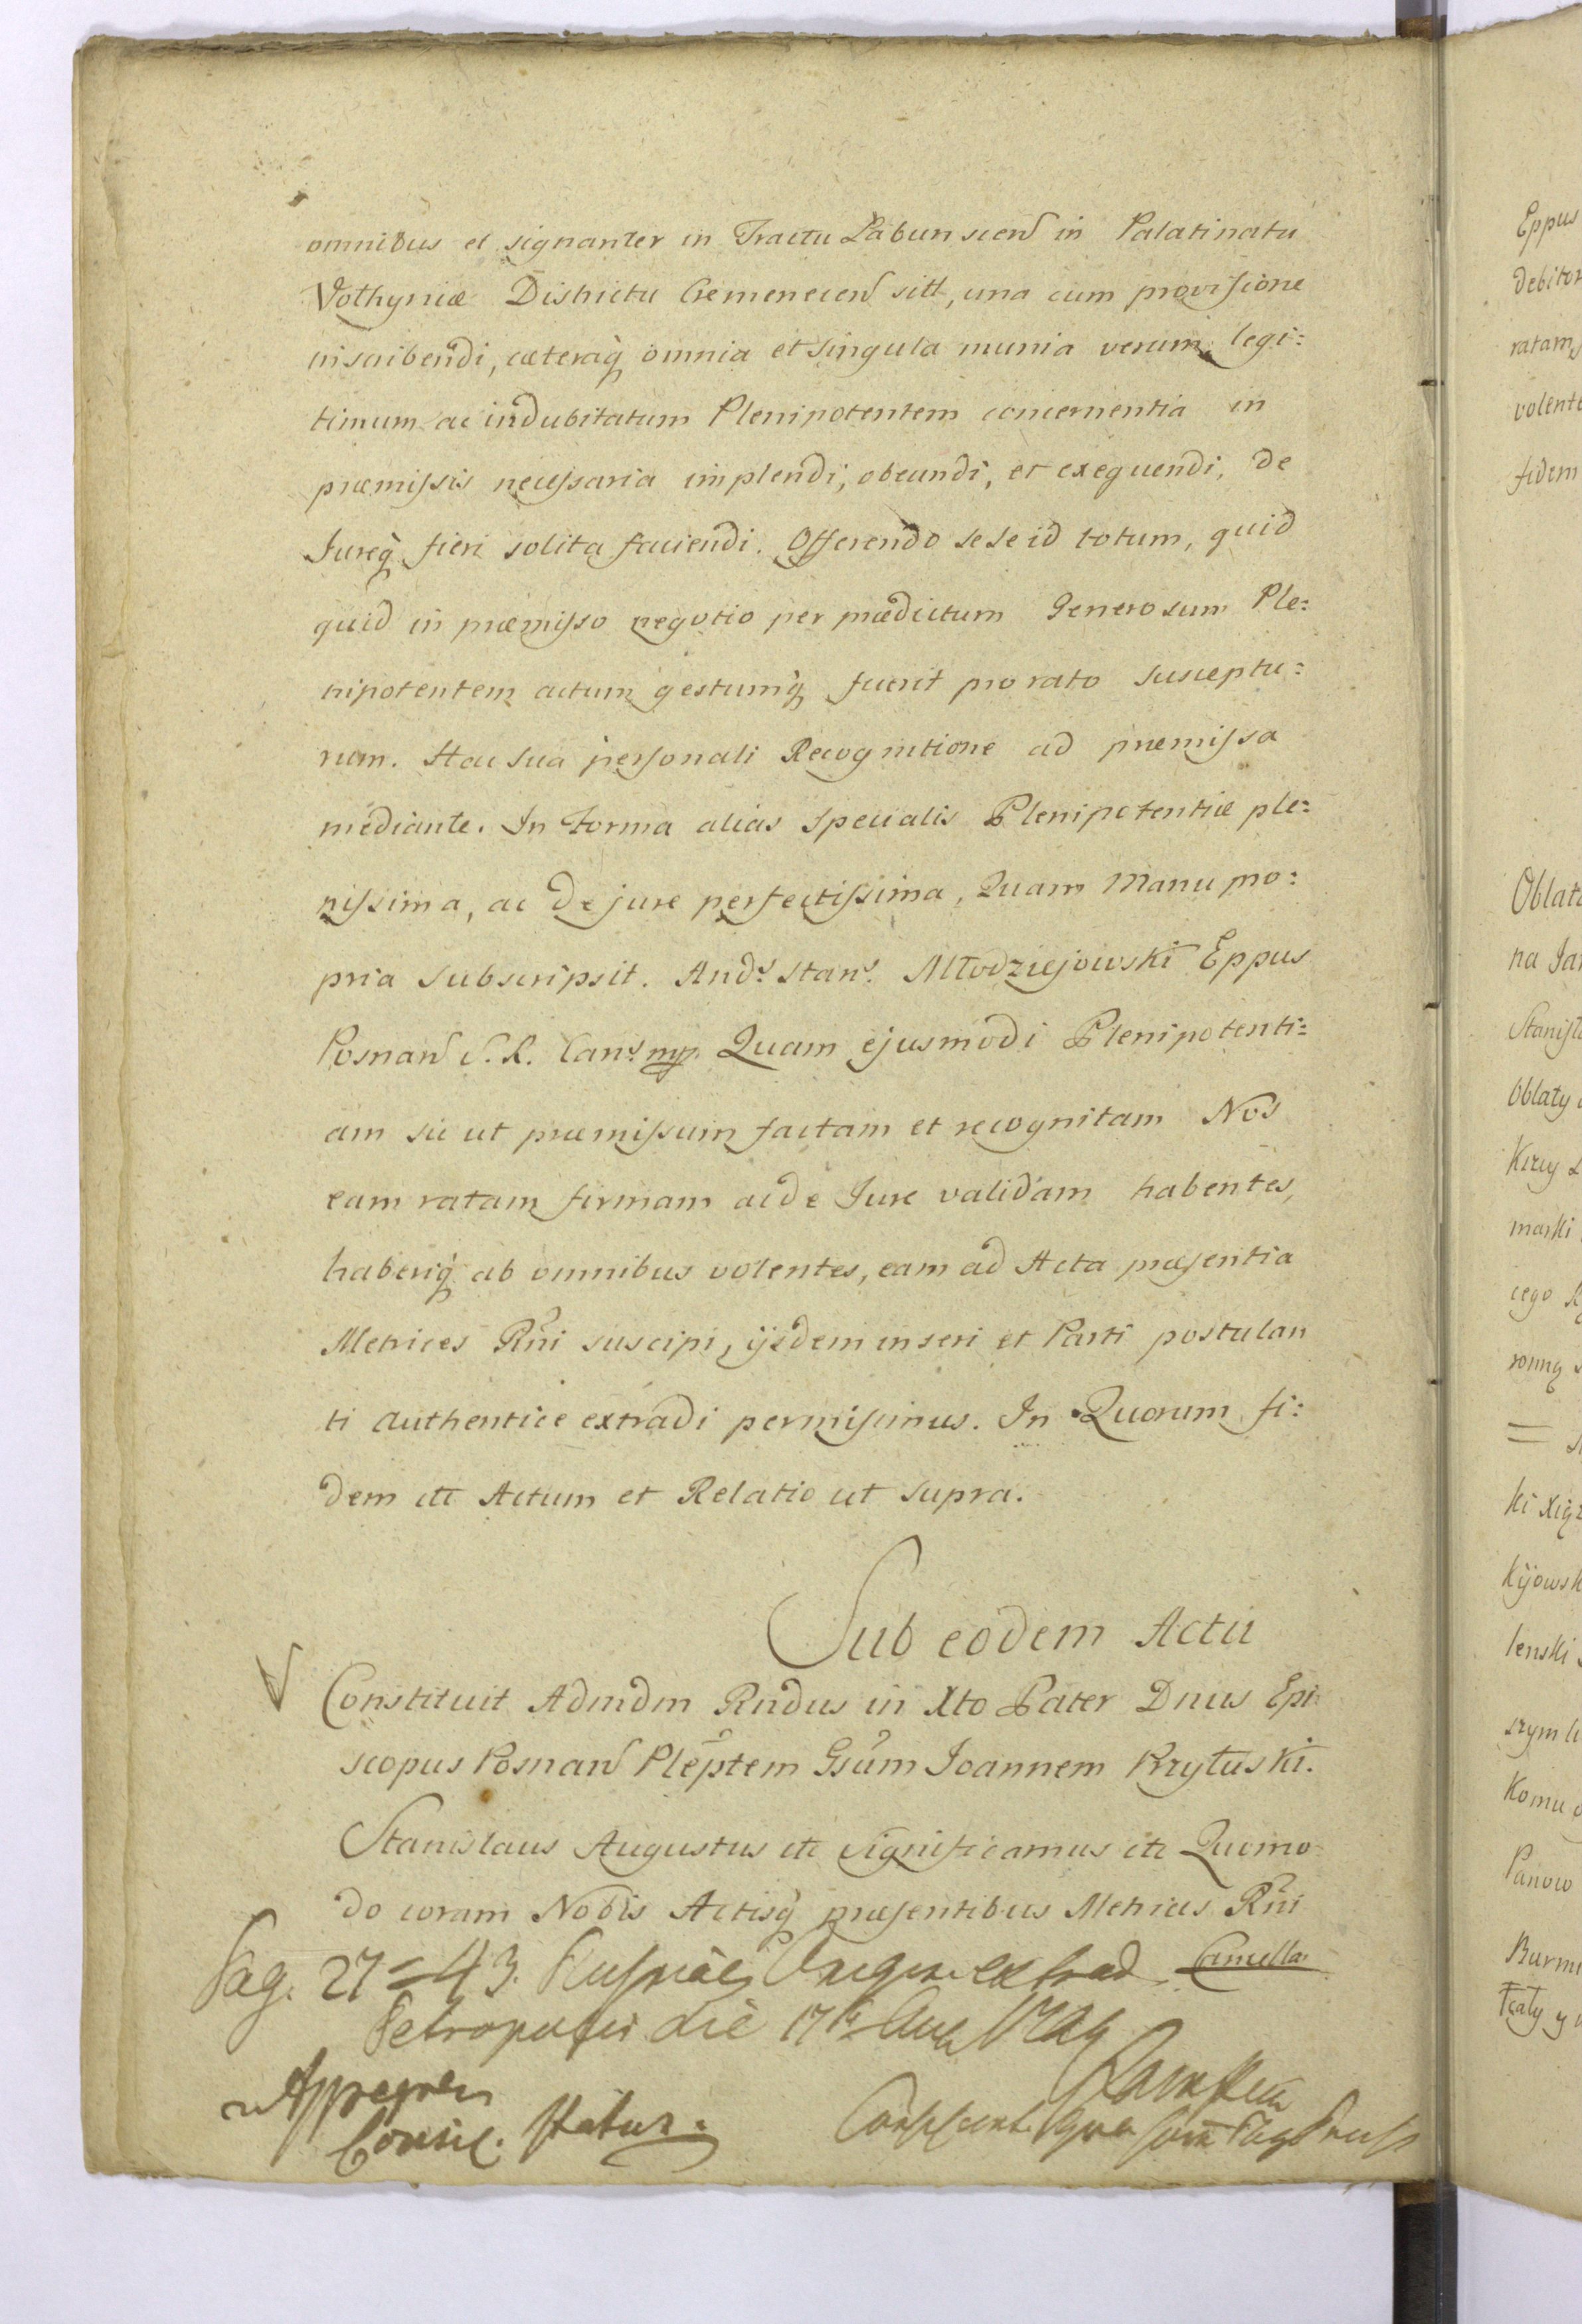 omnibus et signanter in Tractu Łabunscen̄ in Palatinatu
Volhyniæ Districtu Cremenecen̄ sitt, una cum provisione
inscribendi, cæteraq̀ omnia et singula munia verum, legi:
timum ac indubitatum Plenipotentem concernentia in
præmissis necessaria implendi, obeundi, et exequendi, de
Jureq̀ fieri solita faciendi. Offerendo se se id totum, quid
quid in præmisso negotio per prædictum Generosum Ple:
nipotentem actum gestumq̀ fuerit pro rato suscepturum
rum. Hac sua personali Recognitione ad præmissa
mediante. In Forma alias specialis Plenipotentiæ ple:
nissima, ac de jure perfectissima, Quam Manu pro:
pria subscripsit. Andˢ Stanˢ. Młodziejowski Eppus
Posnan̄ S. R. Canˢ mp Quam ejusmodi Plenipotenti:
am sic ut præmissum factam et recognitam Nos
eam ratam firmam ac de Jure validam habentes,
haberiq̀ ab omnibus volentes, eam ad Acta præsentia
Metrices Rni suscipi, ijsdem inseri et Parti postulan
ti authentice extradi permisimus. In Quorum fi:
dem etc Actum et Relatio ut supra.
Sub eodem Actu
Constituit Admdm Rndus in Xto Pater Dnus Epi
scopus Posnan̄ Pleptem Gsum Joannem Krytuski.
Stanislaus Augustus etc Significamus etc Quomo
do coram Nobis Actisq̀ præsentibus Metrices Rni
Pag. 27=43. extrad. Cancella
die 17
Consil. Status.
Eppus
debitor
ratam
volente
fidem
Oblata
na Jan
Stanisła
Oblaty
marki
cego
lenski
Komu
Panow